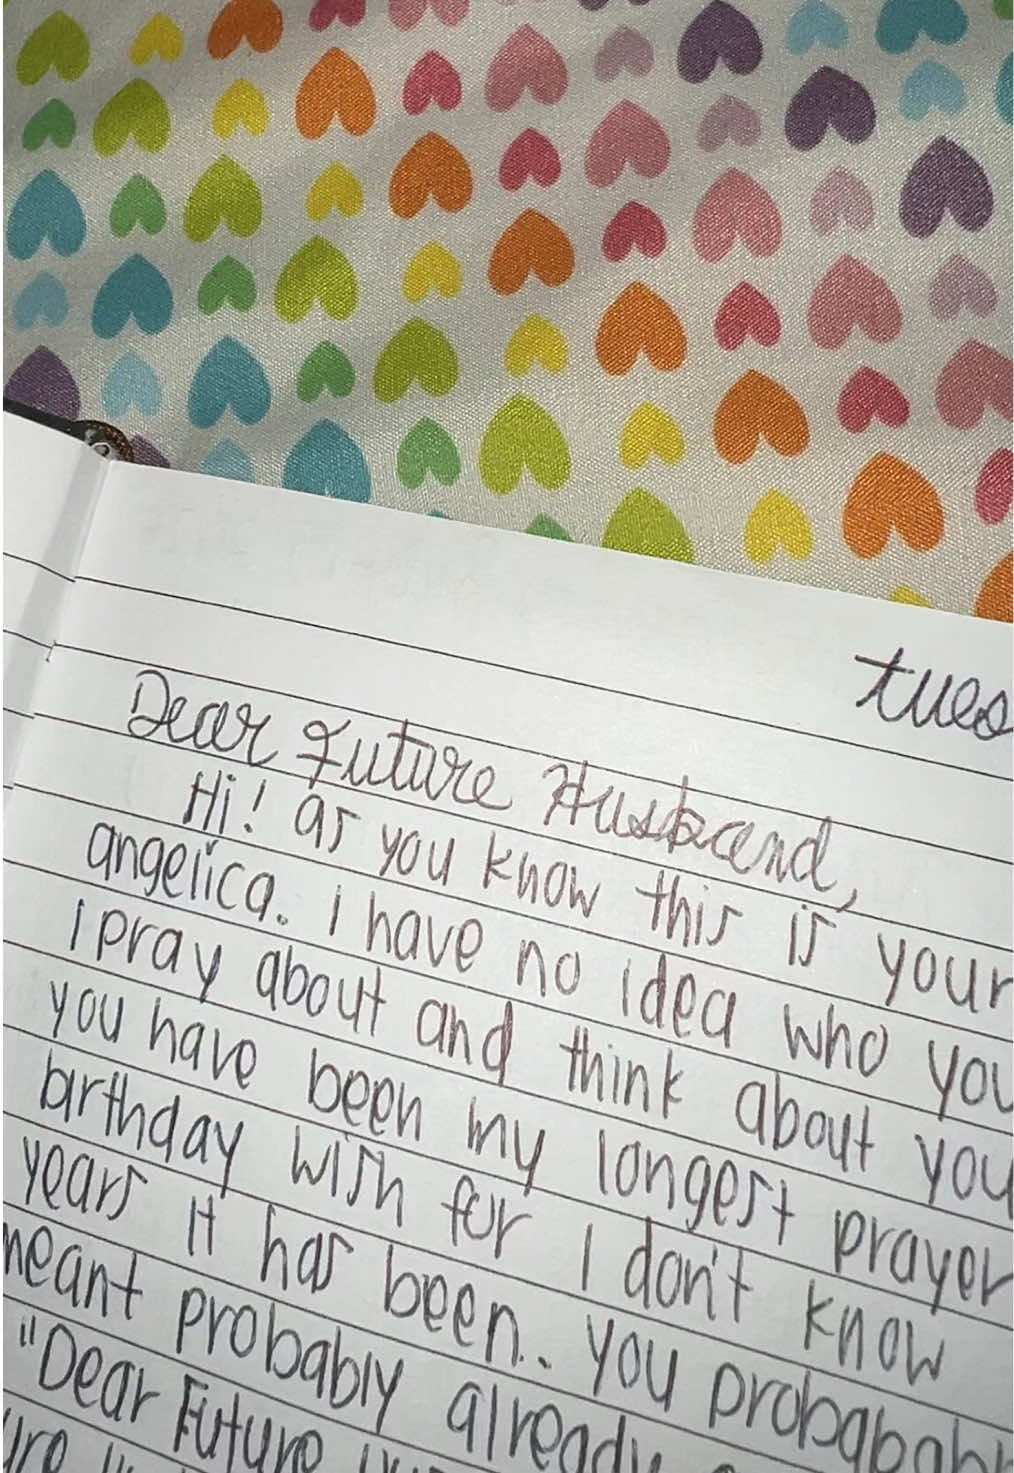 tues
Dear Future Husband,
Hi! as you know this is your
angelica. I have no idea who you
I pray about and think about you
you have been my longest prayer
birthday wish for I don't know
years it has been.. you probabably
meant probably already
"Dear Future